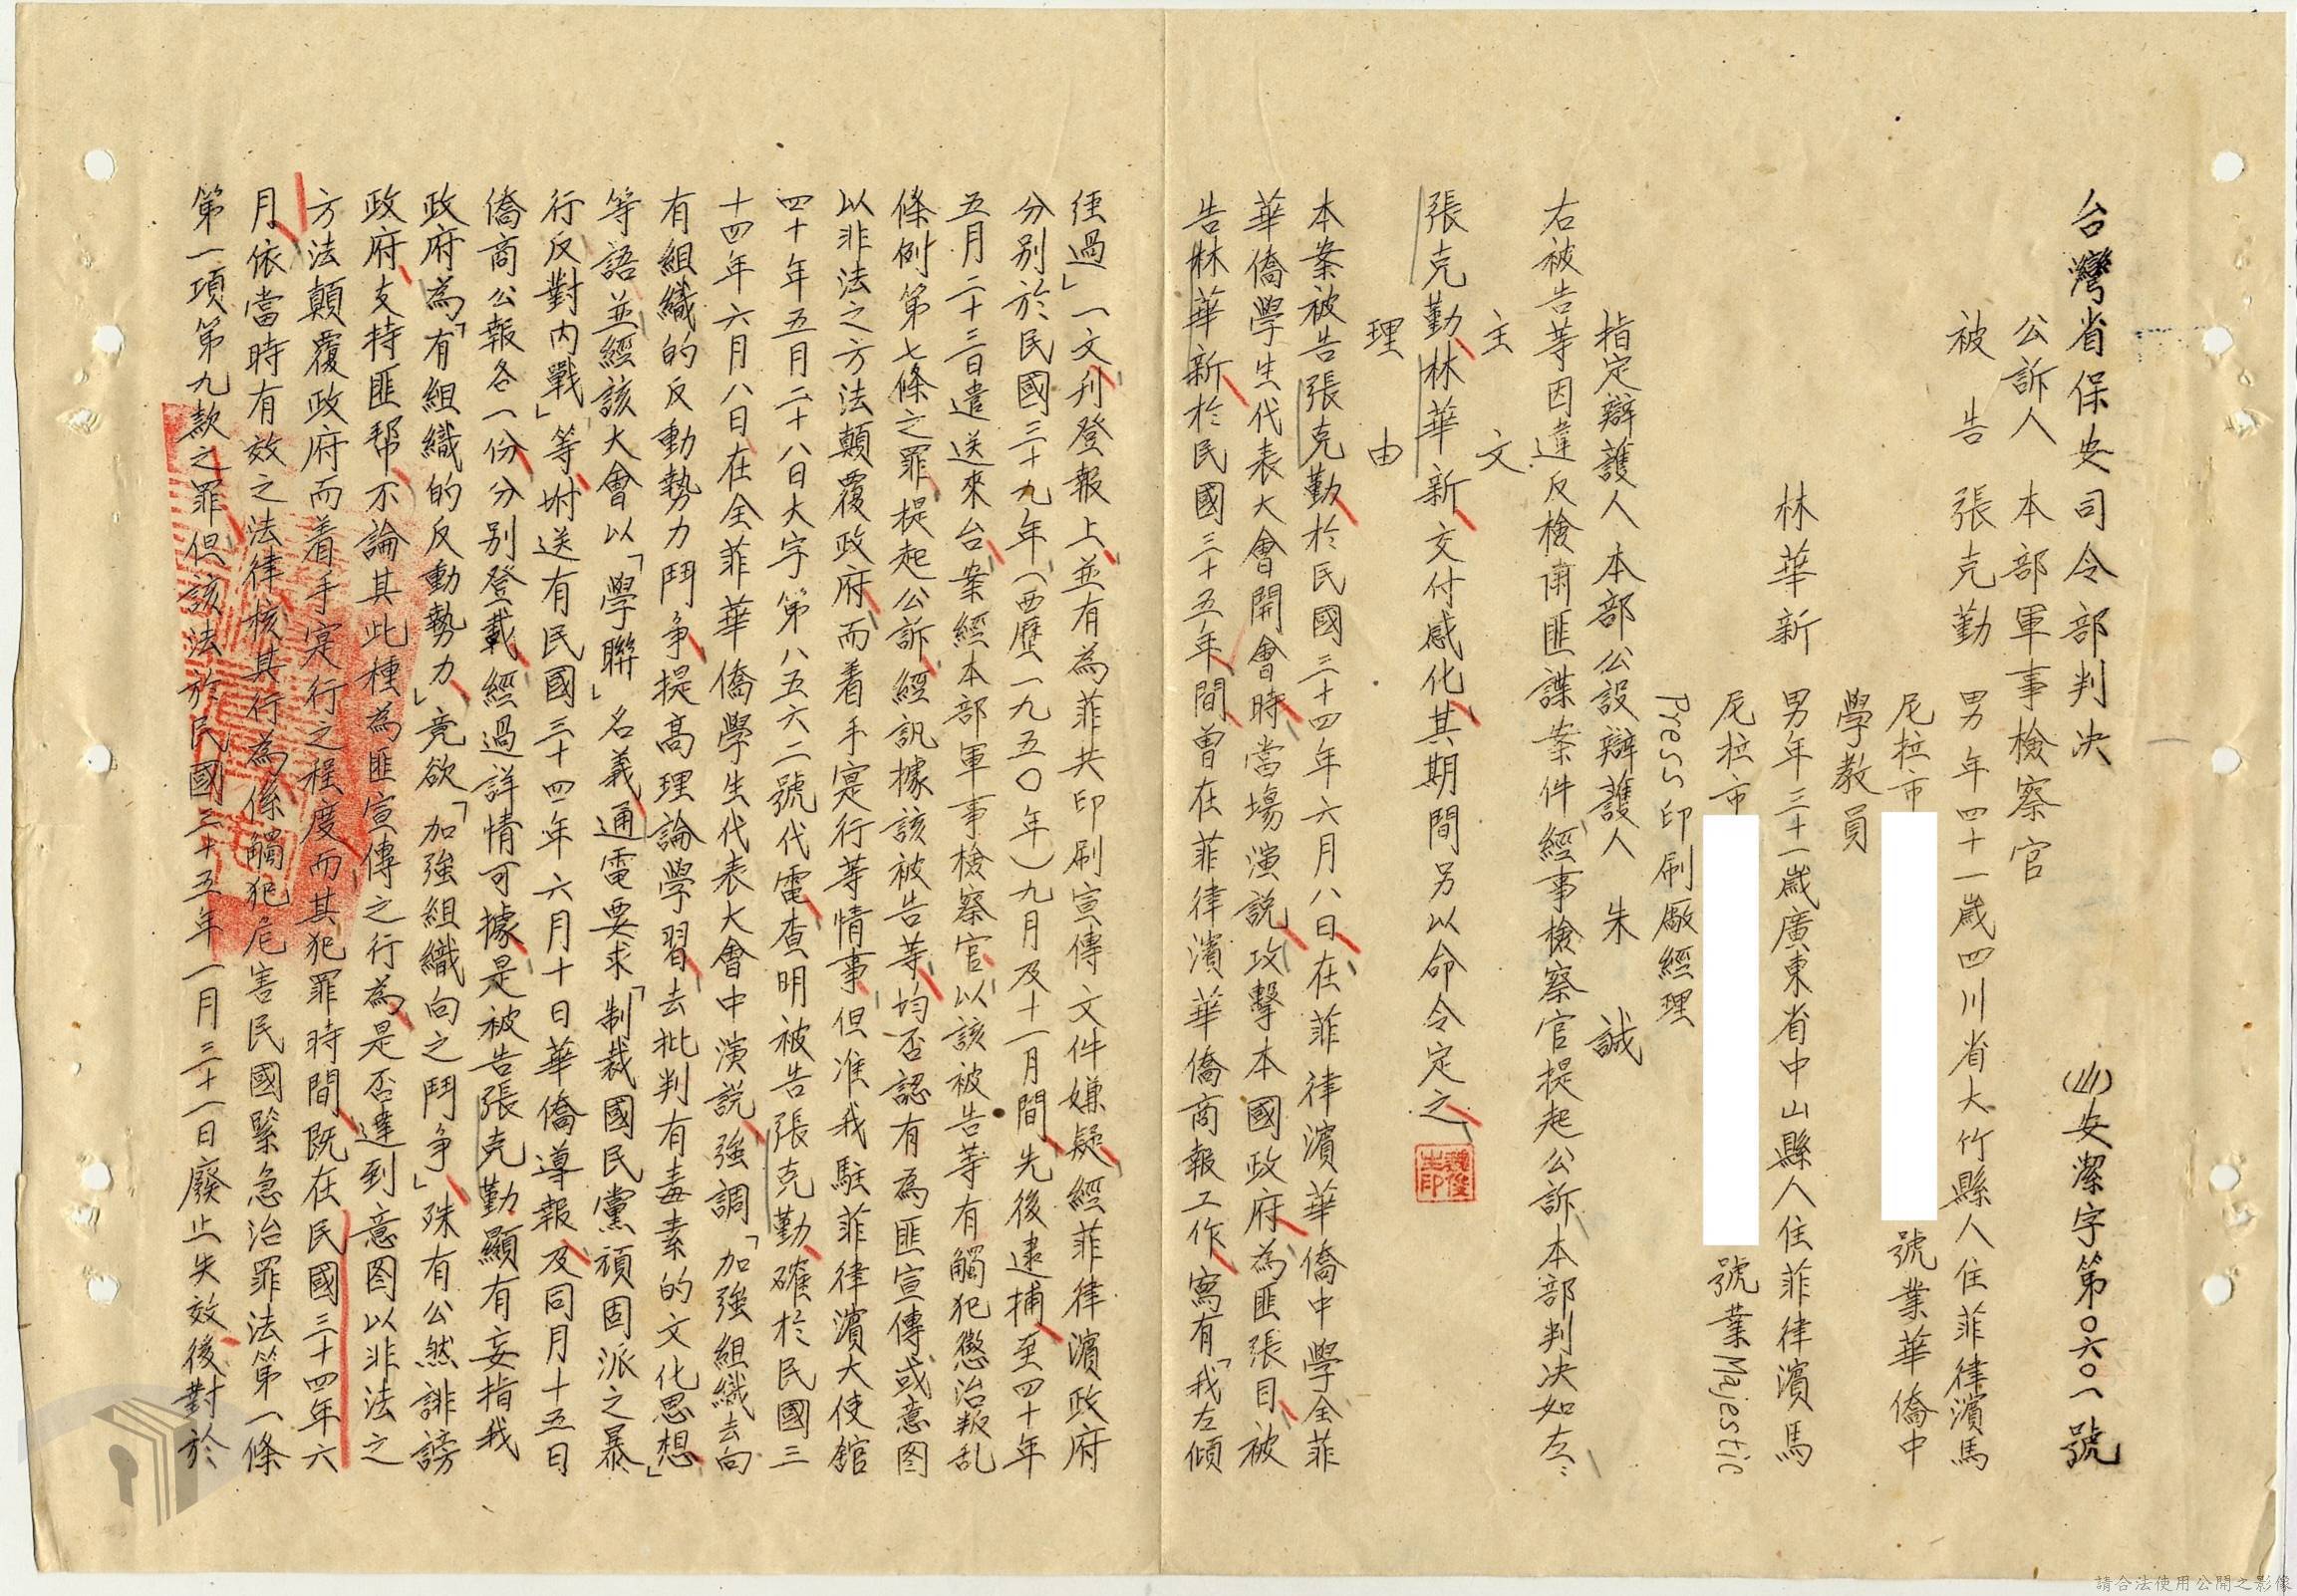 台灣省保安司令部判决
(41)安潔字第〇六〇一號
公訴人　本部軍事檢察官
被告　張克勤　男年四十一歲四川省大竹縣人住菲律濱馬
尼拉市　號業華僑中
學教員
林華新　男年三十一歲廣東省中山縣人住菲律濱馬
尼拉市　號業Majestic
Press印刷廠經理
指定辯護人本部公設辯護人　朱　誠
右被告等因違反檢肅匪諜案件經事檢察官提起公訴本部判决如左：
主　文
張克勤林華新交付感化其期間另以命令定之
理　由
本案被告張克勤於民國三十四年六月八日在菲律濱華僑中學全菲
華僑學生代表大會開會時當場演説攻擊本國政府為匪張目被
告林華新於民國三十五年間曾在菲律濱華僑商報工作寫有「我左傾
徑過」一文刋登報上並有為菲共印刷宣傳文件嫌疑經菲律濱政府
分别於民國三十九年(西歷一九五〇年)九月及十一月間先後逮捕至四十年
五月二十三日遣送來台案經本部軍事檢察官以該被告等有觸犯懲治叛乱
條例第七條之罪提起公訴經訊據該被告等均否認有為匪宣傳或意图
以非法之方法顛覆政府而着手寔行等情事但准我駐菲律濱大使舘
四十年五月二十八日大字第八五六二號代電查明被告張克勤確於民國三
十四年六月八日在全菲華僑學生代表大會中演説強調「加強組織去向
有組織的反動勢力鬥争提高理論學習去批判有毒素的文化思想」
等語並經該大會以「學聯」名義通電要求「制裁國民黨頑固派之暴
行反對内戰」等坿送有民國三十四年六月十日華僑導報及同月十五日
僑商公報各一份分别登載經過詳情可據是被告張克勤顯有妄指我
政府為「有組織的反動勢力」竟欲「加強組織向之鬥争」殊有公然誹謗
政府支持匪帮不論其此種為匪宣傳之行為是否達到意图以非法之
方法顛覆政府而着手寔行之程度而其犯罪時間既在民國三十四年六
月依當時有效之法律核其行為係觸犯危害民國緊急治罪法第一條
第一項第九款之罪但該法於民國三十五年一月三十一日廢止失效後對於
請合法使用公開之影像